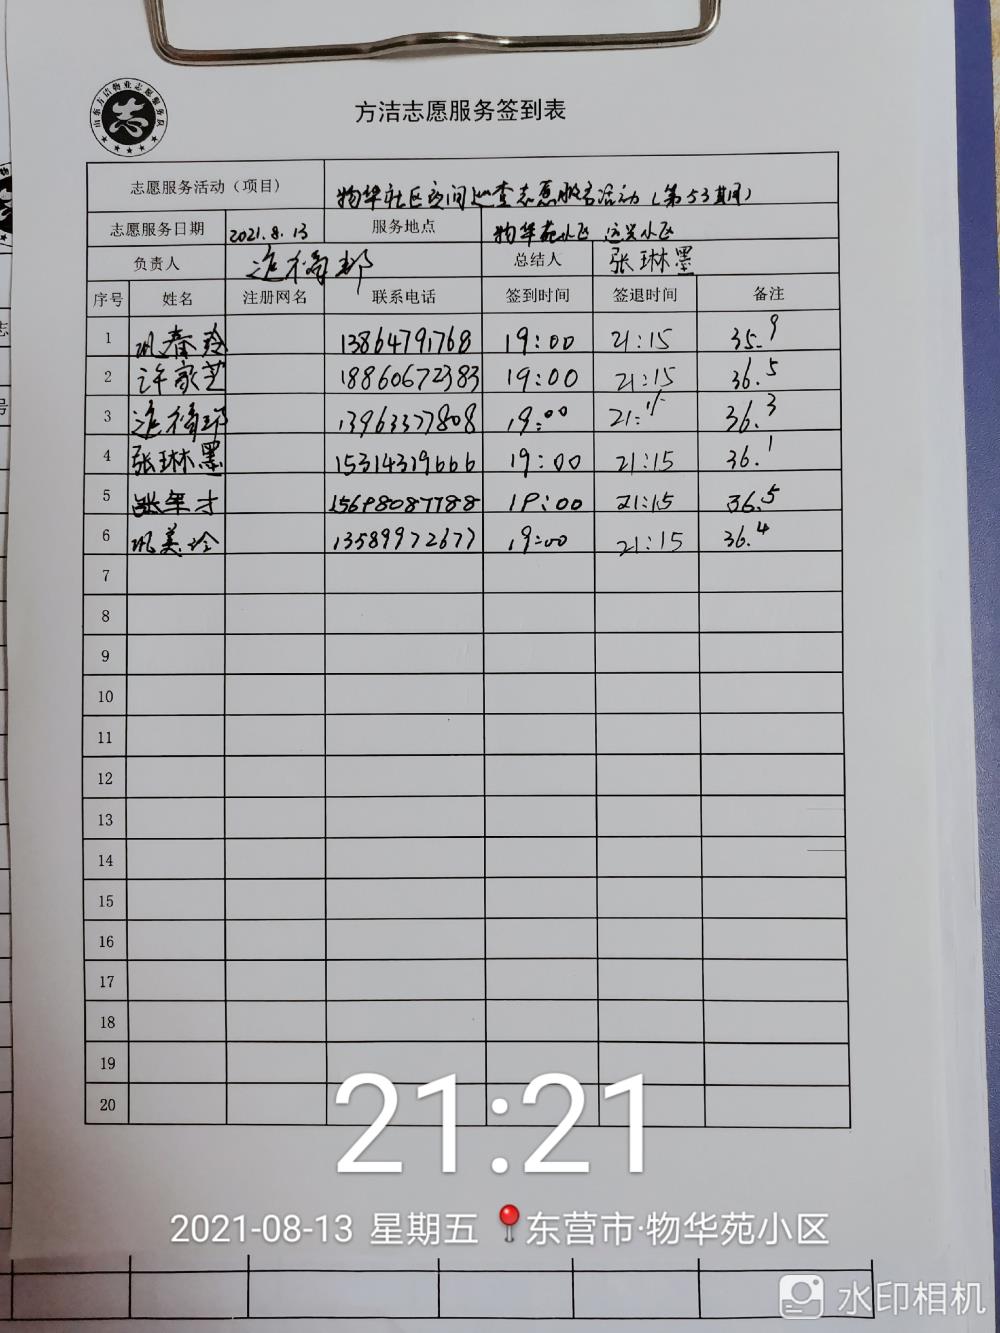 山东方洁物业志愿服务队
志
方洁志愿服务签到表
志愿服务活动（项目） 物华社区夜间巡查志愿服务活动（第53期）
志愿服务日期 2021.8.13 服务地点 物华苑小区
负责人 总结人 张琳墨
序号 姓名 注册网名 联系电话 签到时间 签退时间 备注
1 巩春玲 13864791768 19:00 21:15 35.9
2 许家芝 18860672383 19:00 21:15 36.5
3 13963377808 19:00 21:15 36.3
4 张琳墨 15314319666 19:00 21:15 36.1
5 张军才 15698087788 19:00 21:15 36.5
6 巩美玲 13589972677 19:00 21:15 36.4
7
8
9
10
11
12
13
14
15
16
17
18
19
20
21:21
2021-08-13 星期五 东营市·物华苑小区
水印相机